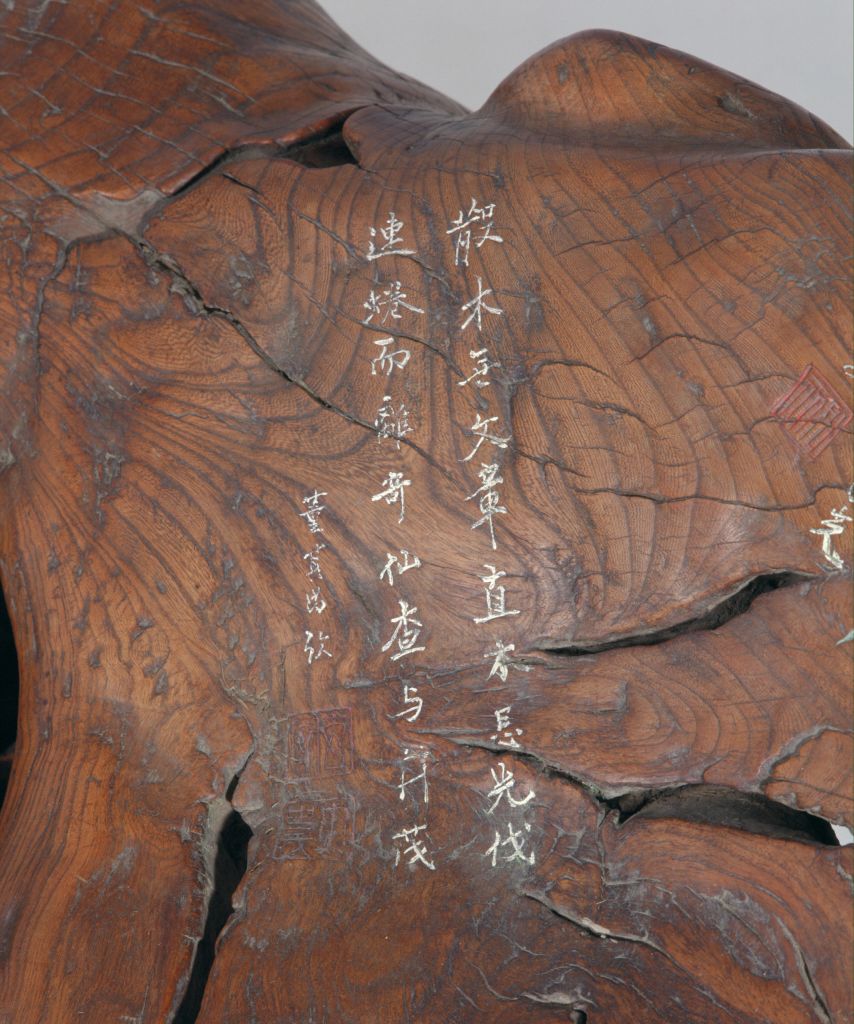 散木无文章直木忌先伐
連蜷而離奇仙查与舟茷
董其昌